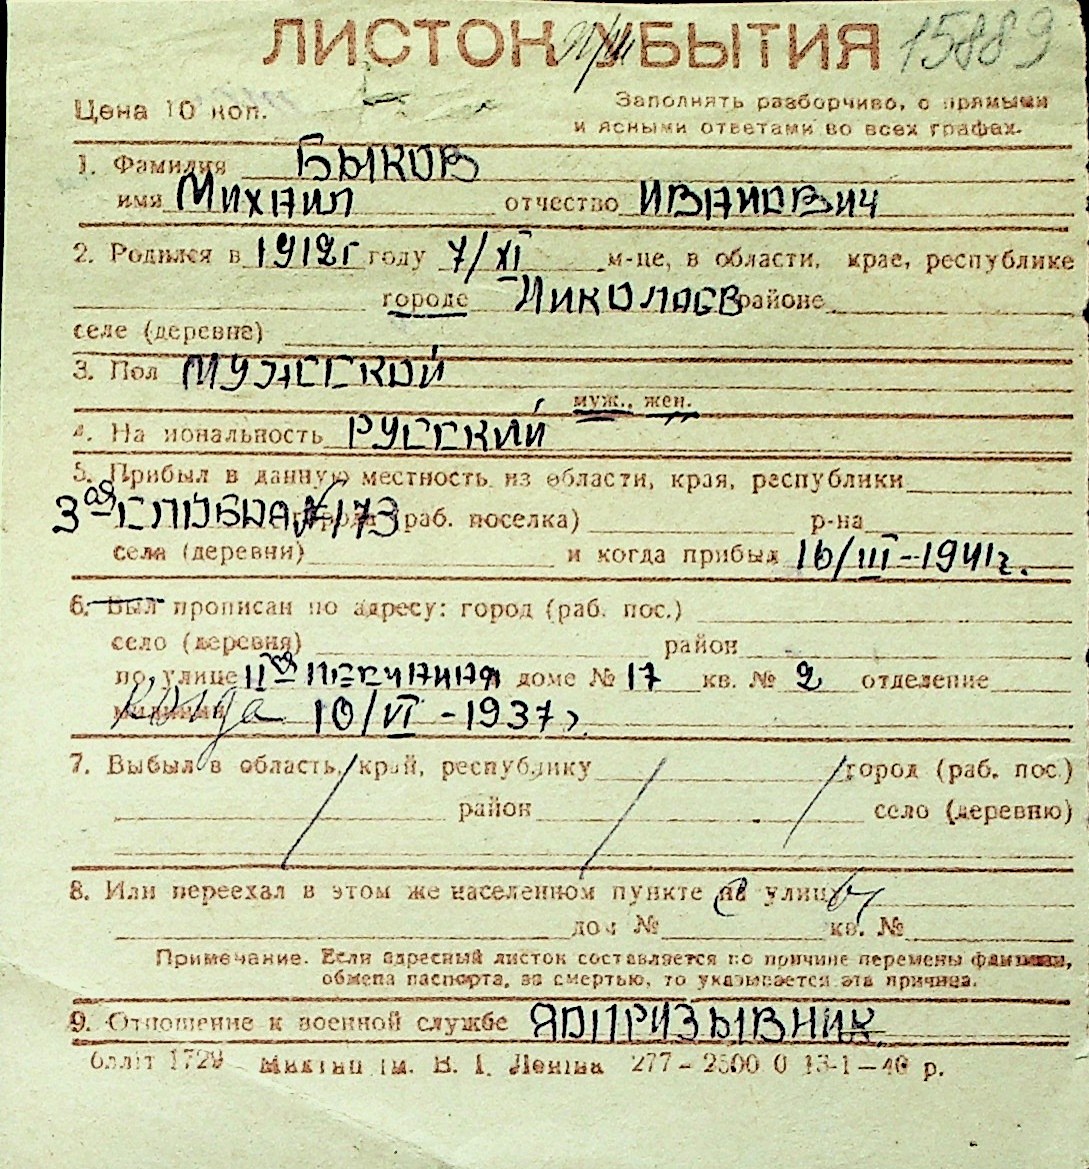 ЛИСТОК УБЫТИЯ 15889
Цена 10 коп. Заполнять разборчиво, с прямыми
и ясными ответами во всех графах.
1. Фамилия БЫКОВ
имя МИХАИЛ отчество ИВАНОВИЧ
2. Родился в 1912г году 7/XI м-це, в области, крае, республике
городе НИКОЛАЕВ районе
селе (деревне)
3. Пол МУЖССКОЙ
муж., жен.
4. На иональность РУССКИЙ
5. Прибыл в данную местность из области, края, республики
3ая СЛОБДА № 173 города (раб. поселка) р-на
села (деревни) и когда прибыл 16/III-1941г.
6. Был прописан по адресу: город (раб. пос.)
село (деревня) район
по улице IIая ПЕСЧАНАЯ доме № 17 кв. № 2 отделение
милиции Когда 10/VI-1937г.
7. Выбыл в область, край, республику город (раб. пос.)
район село (деревню)
8. Или переехал в этом же населенном пункте на улицу
дом № кв. №
Примечание. Если адресный листок составляется по причине перемены фамилии,
обмена паспорта, за смертью, то указывается эта причина.
9. Отношение к военной службе ЯДПРИЗЫВНИК
блліт 1729 Мик тип ім. В. І. Леніна 277-2500 0 13-1-40 р.